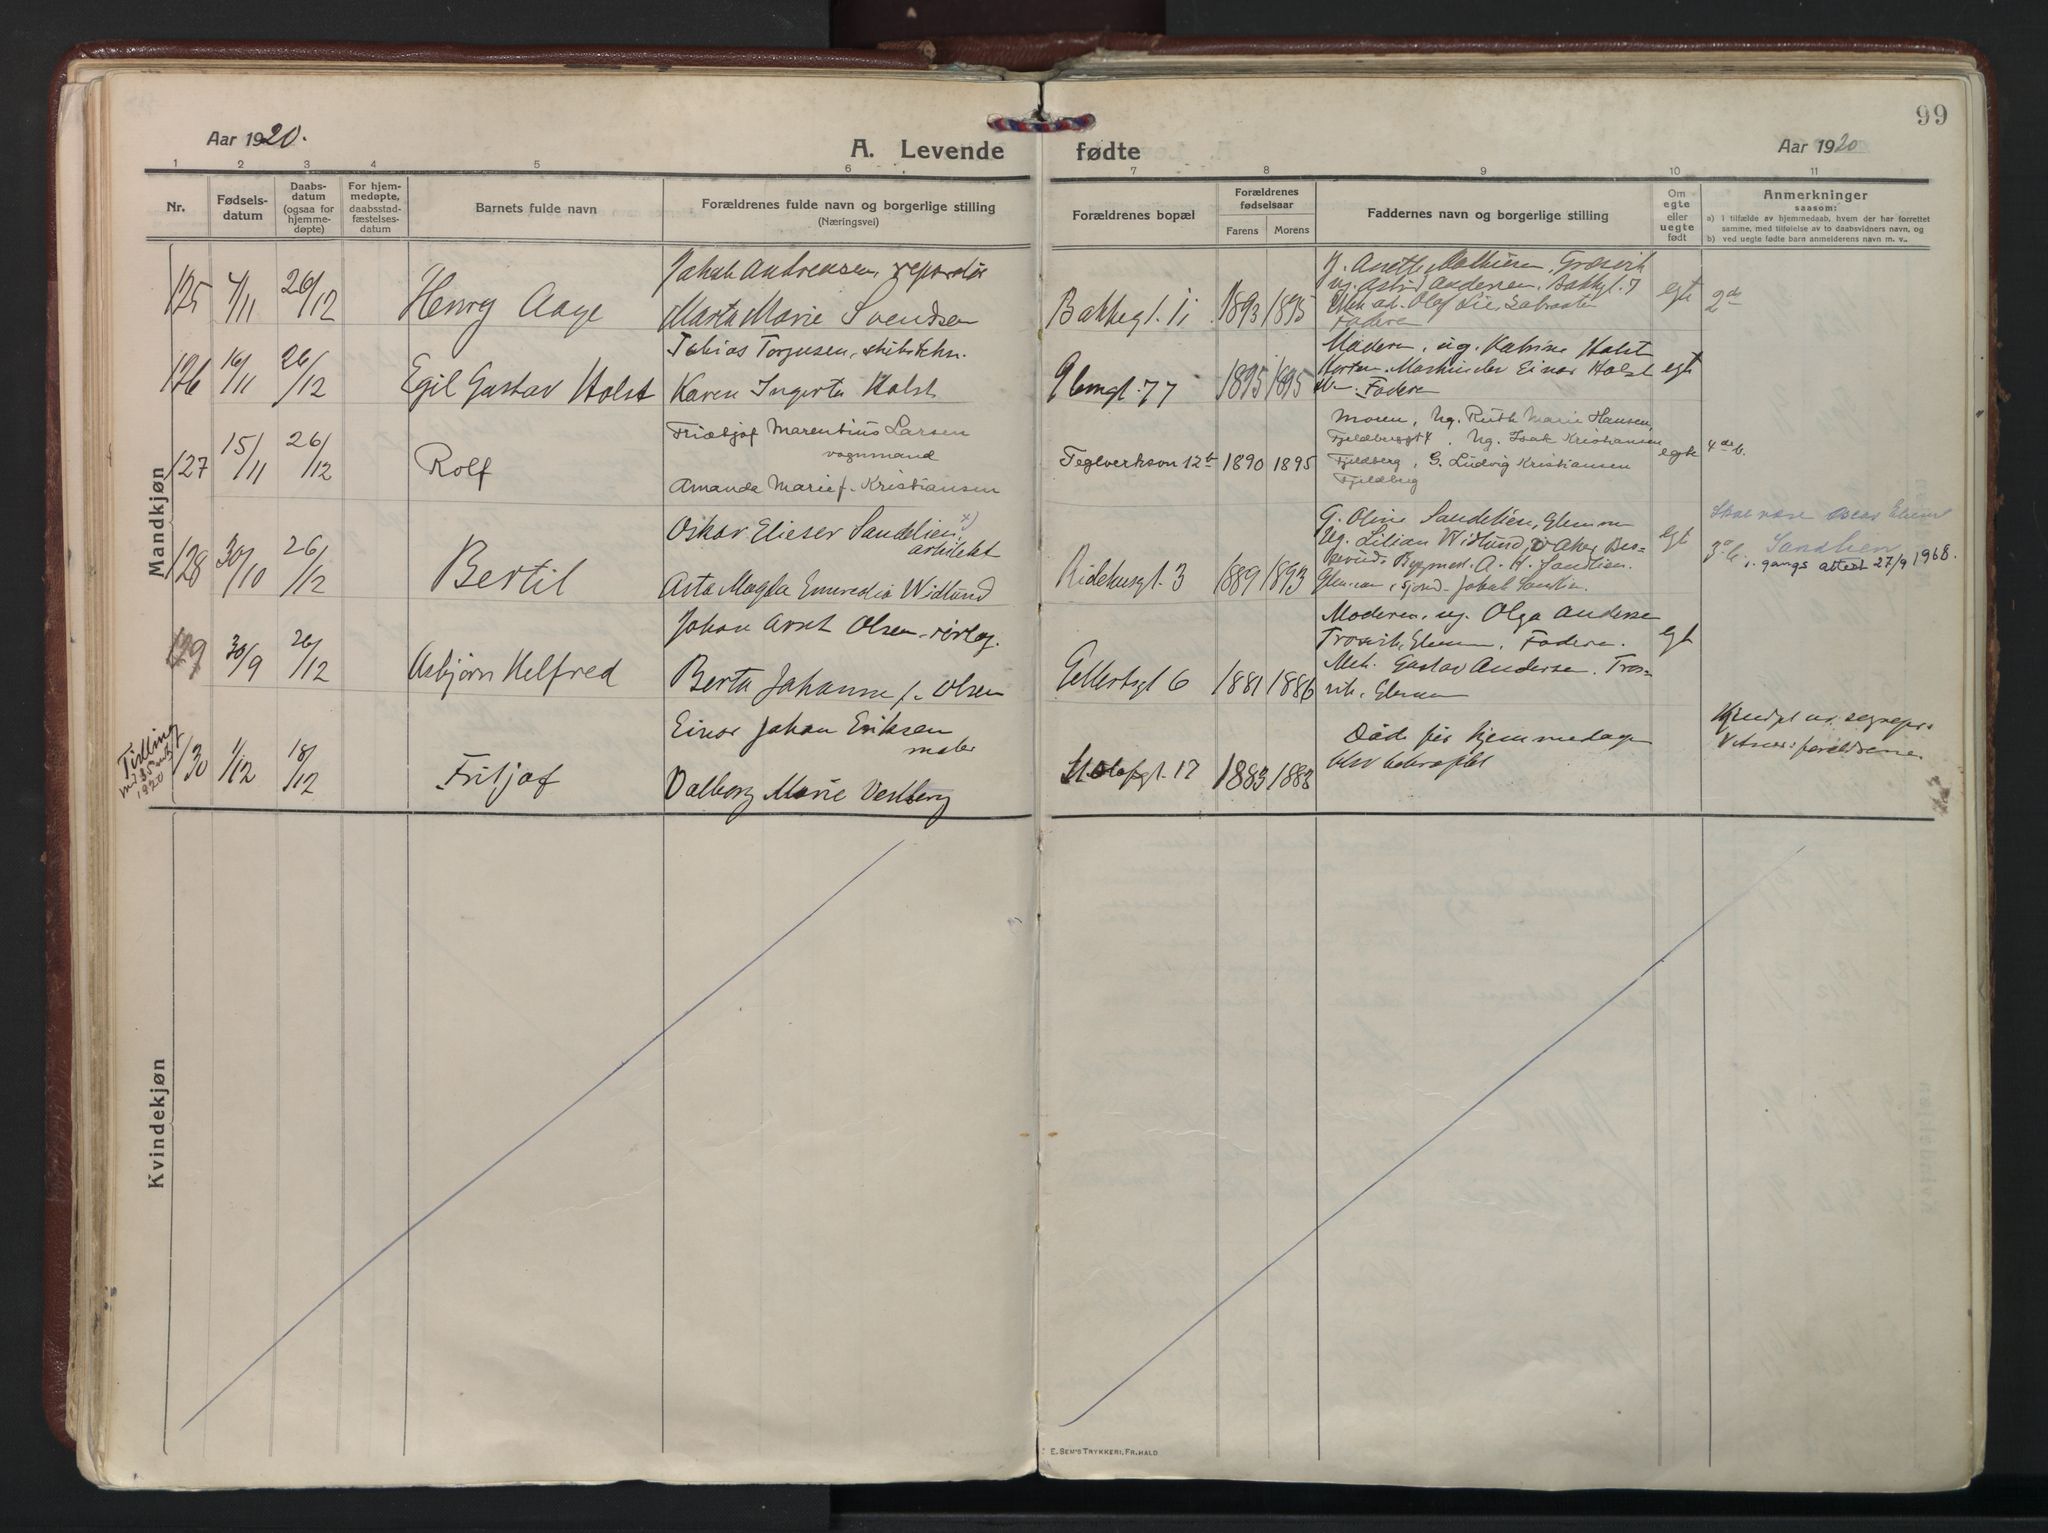 99
Aar 1920.
A. Levende fødte
Aar 1920
1 2 3 4 5 6 7 8 9 10 11
Nr.
Fødsels-
datum
Daabs-
datum
(ogsaa for
hjemme-
døpte)
For hjem-
medøpte,
daabsstad-
fæstelses-
datum
Barnets fulde navn
Forældrenes fulde navn og borgerlige stilling
(Næringsvei)
Forældrenes bopæl
Forældrenes
fødselsaar
Farens Morens
Faddernes navn og borgerlige stilling
Om
egte
eller
uegte
født
Anmerkninger
saasom:
a) i tilfælde av hjemmedaab, hvem der har forrettet
samme, med tilføielse av to daabsvidners navn, og
b) ved uegte fødte barn anmelderens navn m. v..
Mandkjøn
125 4/11 26/12 Henry Aage
Jakob Andreasen, reparatør
Marta Marie Svendsen
Bakkegt. 11 1893 1895
Anette Mathisen, Græsvik
ug. Astrid Andersen, Bakkegt. 7
Olaf Lie,
Faderen
egt 2de
126 16/11 26/12 Egil Gustav Holst
Tobias Torgersen,
Karen Ingerta Holst
Glemgt. 77 1895 1895
Moderen, ug. Katrine Holst
Einar Holst
Faderen
egt
127 15/11 26/12 Rolf
Fridtjof Marentius Larsen
vognmand
Amanda Marie f. Kristiansen
Teglverksvn 12b 1890 1895
Moren, Ug. Ruth Marie Hansen,
Fjeldberggt 4, Ug. Isak Kristiansen
Fjeldberg, G. Ludvig Kristiansen
Fjeldberg
egte 4de b.
128 30/10 26/12 Bertil
Oskar Elieser Sandlien x)
arkitekt
Asta Magda Widlund
Ridehusgt. 3 1889 1893
G. Oline Sandlien, Glemmen
Ug. Lilian Widlund, V. Aker
Bygmest. A. H. Sandlien.
Glemmen, Jakob Sandlien.
egt
Skal være Oscar
Sandlien
i. gangs attest 27/9 1968.
129 30/9 26/12 Asbjørn Helfred
Johan Arnt Olsen
Berta Johanne f. Olsen
Gellertsgt 6 1881 1886
Moderen, ug. Olga Andersen
Trosvik, Glemm, Faderen.
Mek. Gustav Andersen. Tros-
vik, Glemmen
egt
Tvilling
1920
130 1/12 18/12 Fritjof
Einar Johan Eriksen
maler
Valborg Marie Vestberg
St. Olafsgt. 17 1883 1883
Død før hjemmedaaben
blev bekræftet
Vitner: forældrene
Kvindekjøn
E. SEM'S TRYKKERI, FR.HALD